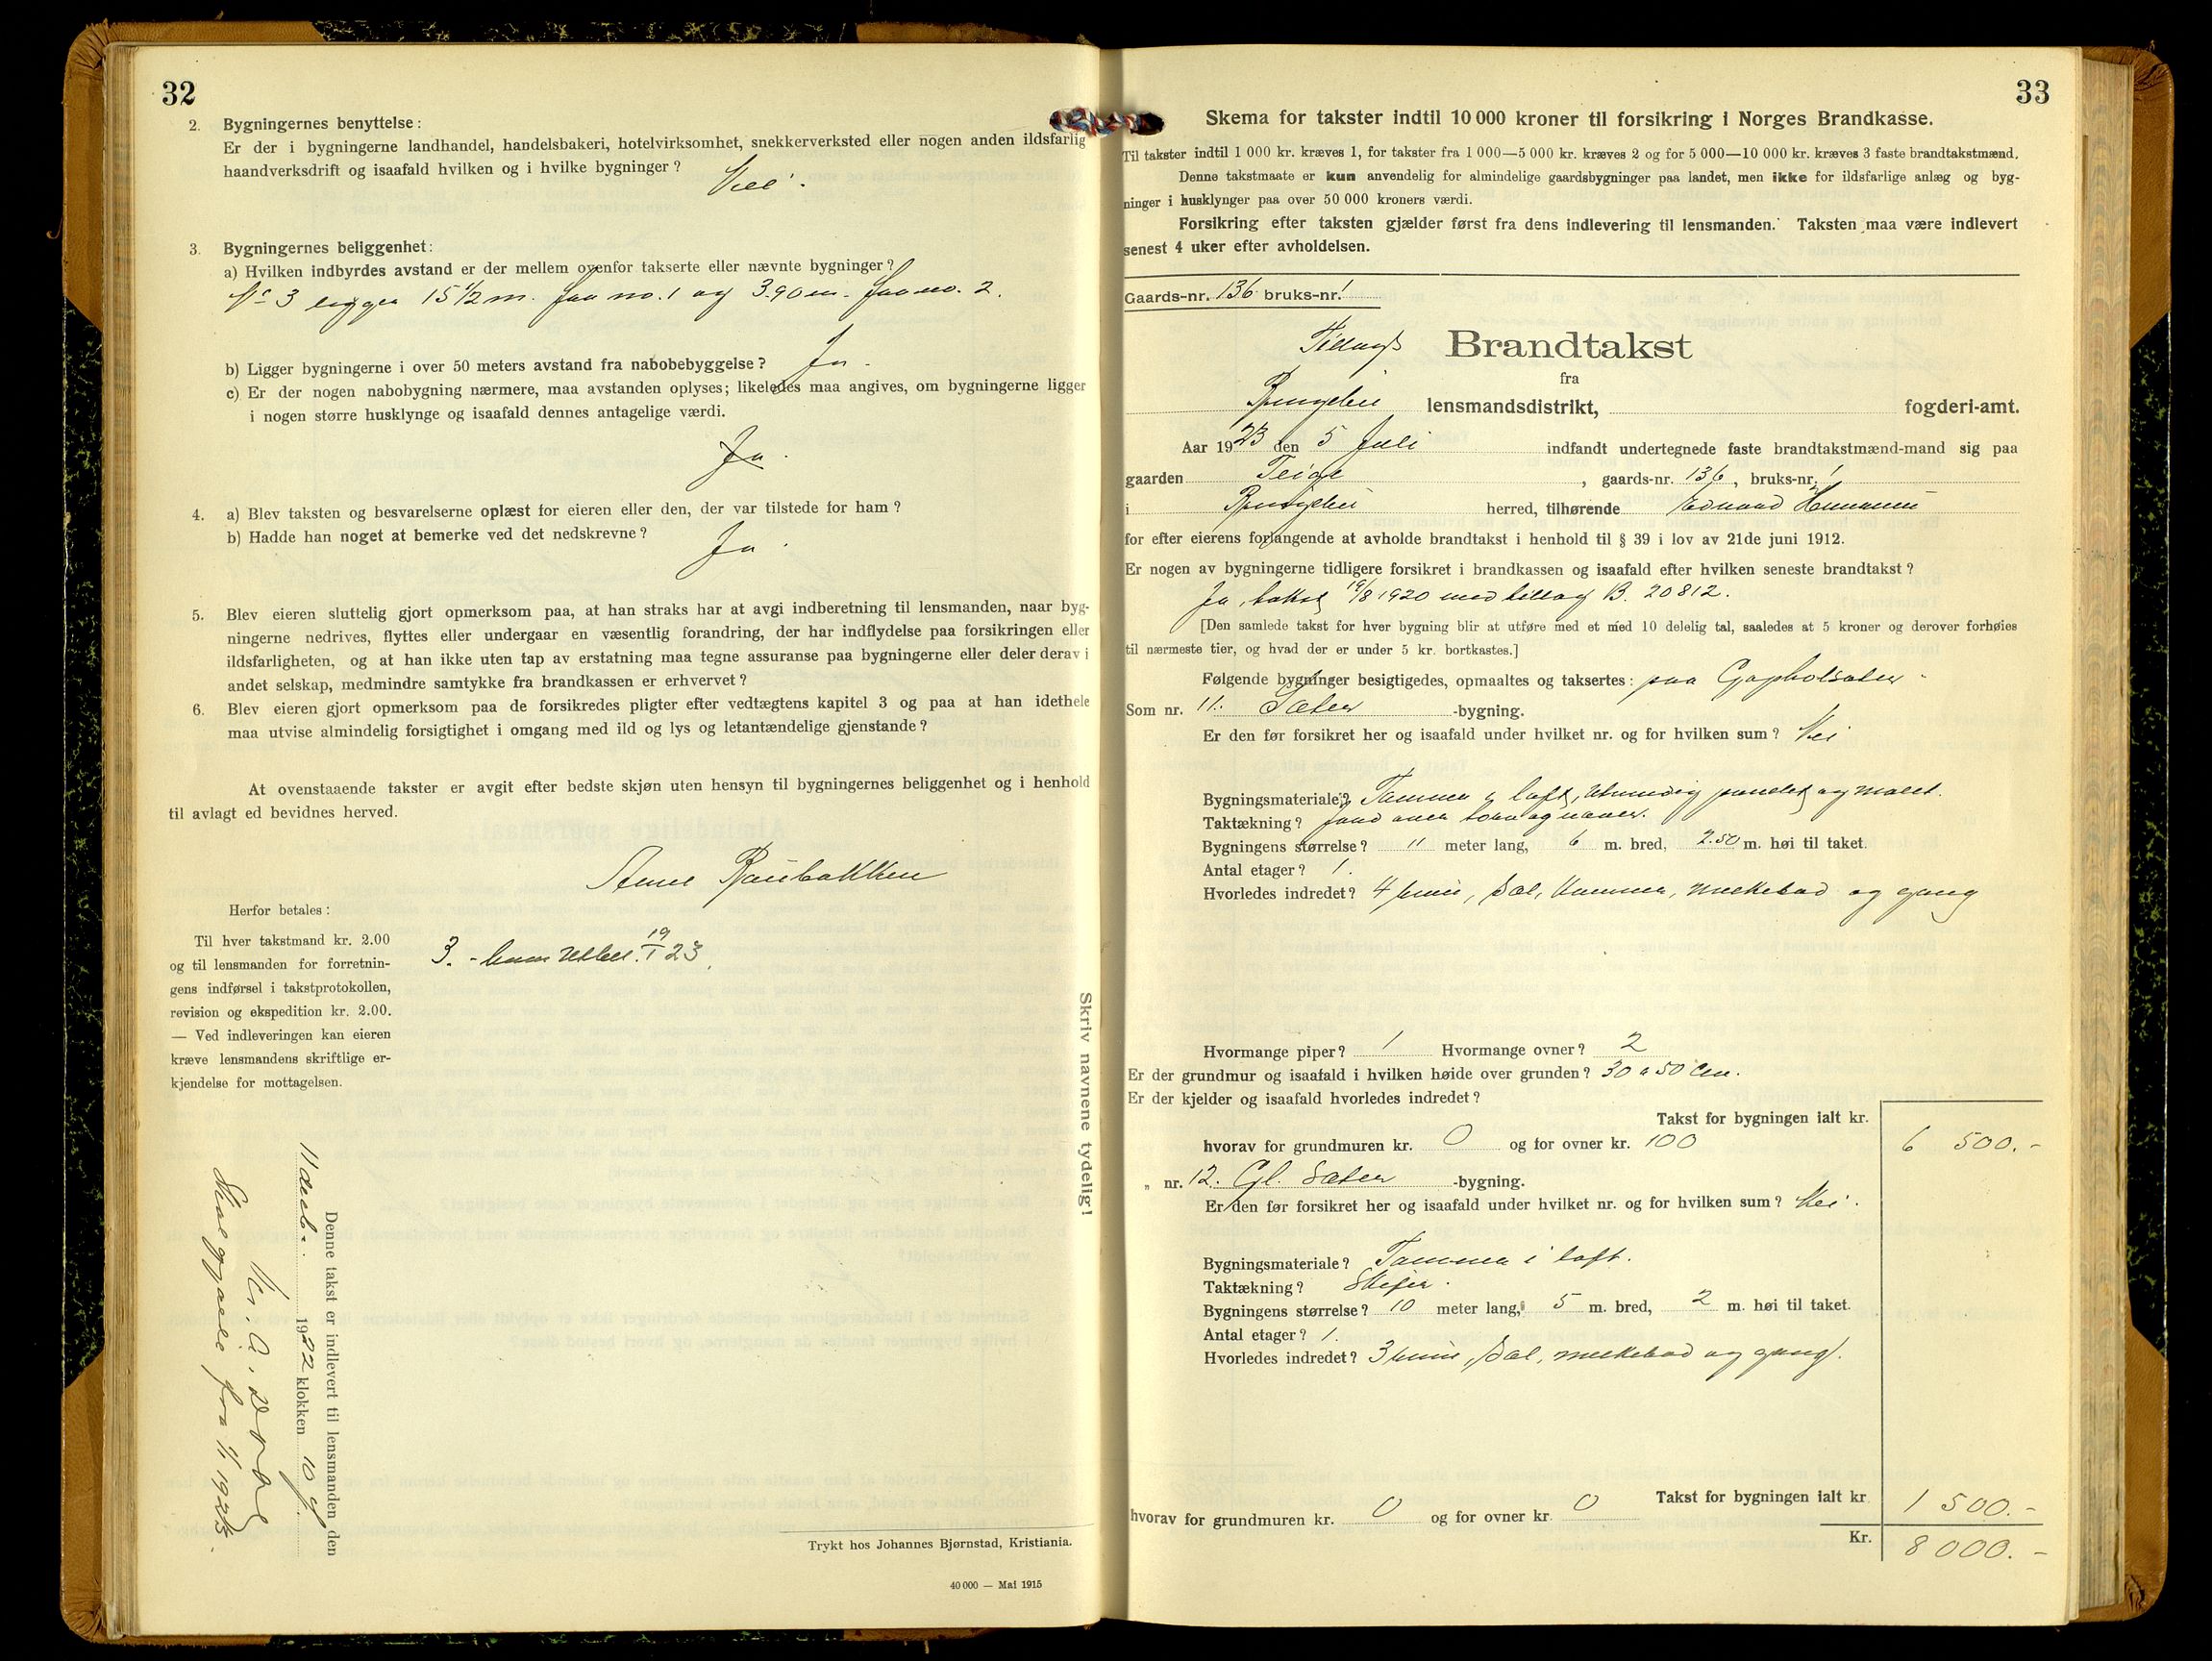 32
2. Bygningernes benyttelse:
Er der i bygningerne landhandel, handelsbakeri, hotelvirksomhet, snekkerverksted eller nogen anden ildsfarlig
haandverksdrift og isaafald hvilken og i hvilke bygninger? Nei.
3. Bygningernes beliggenhet:
a) Hvilken indbyrdes avstand er der mellem ovenfor takserte eller nævnte bygninger?
No 3 ligger 15 1/2 m. fra no. 1 og 3.90 m. fra no. 2.
b) Ligger bygningerne i over 50 meters avstand fra nabobebyggelse? Ja.
c) Er der nogen nabobygning nærmere, maa avstanden oplyses; likeledes maa angives, om bygningerne ligger
i nogen større husklynge og isaafald dennes antagelige værdi.
Ja.
4. a) Blev taksten og besvarelserne oplæst for eieren eller den, der var tilstede for ham?
b) Hadde han noget at bemerke ved det nedskrevne? Ja.
5. Blev eieren sluttelig gjort opmerksom paa, at han straks har at avgi indberetning til lensmanden, naar byg-
ningerne nedrives, flyttes eller undergaar en væsentlig forandring, der har indflydelse paa forsikringen eller
ildsfarligheten, og at han ikke uten tap av erstatning maa tegne assuranse paa bygningerne eller deler derav i
andet selskap, medmindre samtykke fra brandkassen er erhvervet?
6. Blev eieren gjort opmerksom paa de forsikredes pligter efter vedtægtens kapitel 3 og paa at han idethele
maa utvise almindelig forsigtighet i omgang med ild og lys og letantændelige gjenstande?
At ovenstaaende takster er avgit efter bedste skjøn uten hensyn til bygningernes beliggenhet og i henhold
til avlagt ed bevidnes herved.
Herfor betales:
Til hver takstmand kr. 2.00
og til lensmanden for forretnin-
gens indførsel i takstprotokollen,
revision og ekspedition kr. 2.00.
— Ved indleveringen kan eieren
kræve lensmandens skriftlige er-
kjendelse for mottagelsen.
3. 19/1 23.
Skriv navnene tydelig!
Denne takst er indlevert til lensmanden den
11 decb. 1922 klokken 10
Skal gjælde fra 1/1 1923.
Trykt hos Johannes Bjørnstad, Kristiania.
40 000 — Mai 1915
33
Skema for takster indtil 10 000 kroner til forsikring i Norges Brandkasse.
Til takster indtil 1 000 kr. kræves 1, for takster fra 1 000—5 000 kr. kræves 2 og for 5 000—10 000 kr. kræves 3 faste brandtakstmænd.
Denne takstmaate er kun anvendelig for almindelige gaardsbygninger paa landet, men ikke for ildsfarlige anlæg og byg-
ninger i husklynger paa over 50 000 kroners værdi.
Forsikring efter taksten gjælder først fra dens indlevering til lensmanden. Taksten maa være indlevert
senest 4 uker efter avholdelsen.
Gaards-nr. 136 bruks-nr. 1
Tillægs Brandtakst
fra
Ringebu lensmandsdistrikt, fogderi-amt.
Aar 1923 den 5 Juli indfandt undertegnede faste brandtakstmænd-mand sig paa
gaarden Teige, gaards-nr. 136, bruks-nr. 1
i Ringebu herred, tilhørende Edvard
for efter eierens forlangende at avholde brandtakst i henhold til § 39 i lov av 21de juni 1912.
Er nogen av bygningerne tidligere forsikret i brandkassen og isaafald efter hvilken seneste brandtakst?
Ja, takst 19/8 1920 med tillæg B. 20812.
[Den samlede takst for hver bygning blir at utføre med et med 10 delelig tal, saaledes at 5 kroner og derover forhøies
til nærmeste tier, og hvad der er under 5 kr. bortkastes.]
Følgende bygninger besigtigedes, opmaaltes og taksertes: paa
Som nr. 11. Sæter -bygning.
Er den før forsikret her og isaafald under hvilket nr. og for hvilken sum? Nei
Bygningsmateriale? Tømmer i laft, utvendig panelet og malet.
Taktækning? Jord over torv og næver.
Bygningens størrelse? 11 meter lang, 6 m. bred, 2.50 m. høi til taket.
Antal etager? 1.
Hvorledes indredet? 4 rum, sæl, kammer, melkebod og gang
Hvormange piper? 1 Hvormange ovner? 2
Er der grundmur og isaafald i hvilken høide over grunden? 30 a 50 Cm.
Er der kjelder og isaafald hvorledes indredet?
Takst for bygningen ialt kr.
hvorav for grundmuren kr. 0 og for ovner kr. 100 6 500.-
„ nr. 12. Gl. Sæter -bygning.
Er den før forsikret her og isaafald under hvilket nr. og for hvilken sum? Nei.
Bygningsmateriale? Tømmer i laft.
Taktækning? Skifer.
Bygningens størrelse? 10 meter lang, 5 m. bred, 2 m. høi til taket.
Antal etager? 1.
Hvorledes indredet? 3 rum, sæl, melkebod og gang.
Takst for bygningen ialt kr. 1 500.-
hvorav for grundmuren kr. 0 og for ovner kr. 0
Kr. 8 000.-